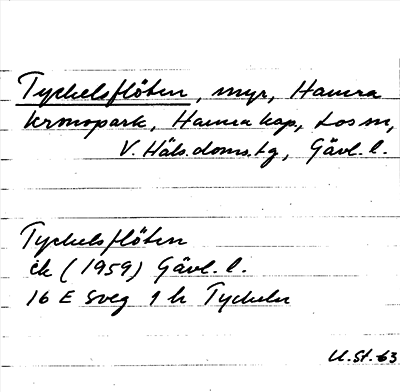 Tyckelsflöten, myr, Hamra
kronopark, Hamra kap, Los sn,
V. Häls. doms. tg, Gävl. l.
Tyckelsflöten
ek (1959) Gävl. l.
16 E Sveg 1 h Tyckeln
U. St. 63